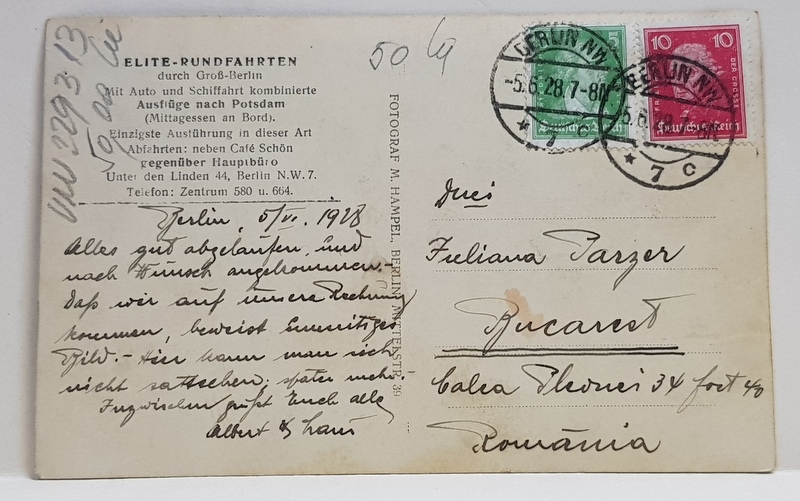 ELITE-RUNDFAHRTEN
durch Groß-Berlin
Mit Auto und Schiffahrt kombinierte
Ausflüge nach Potsdam
(Mittagessen an Bord).
Einzigste Ausführung in dieser Art
Abfahrten: neben Café Schön
gegenüber Hauptbüro
Unter den Linden 44, Berlin N.W. 7.
Telefon: Zentrum 580 u. 664.
Berlin, 5/VI. 1928
Alles gut abgelaufen, und
nach Wunsch angekommen.-
Daß wir auf unsere Rechnung
kommen, beweist
Bild.- Hier kann man sich
nicht sattsehen, später mehr.
Inzwischen grüßt Euch alle
Albert &
FOTOGRAF M. HAMPEL, BERLIN, MITTEKSTR. 39
50
BERLIN NW
-5.6.28.7-8N
* 7 c
5
Deutsches Reich
10 10
DER GROSSE
Deutsches Reich
BERLIN NW
* 7 c
Duei
Iuliana Parzer
Bucarest
Calea Plevnei 34
România